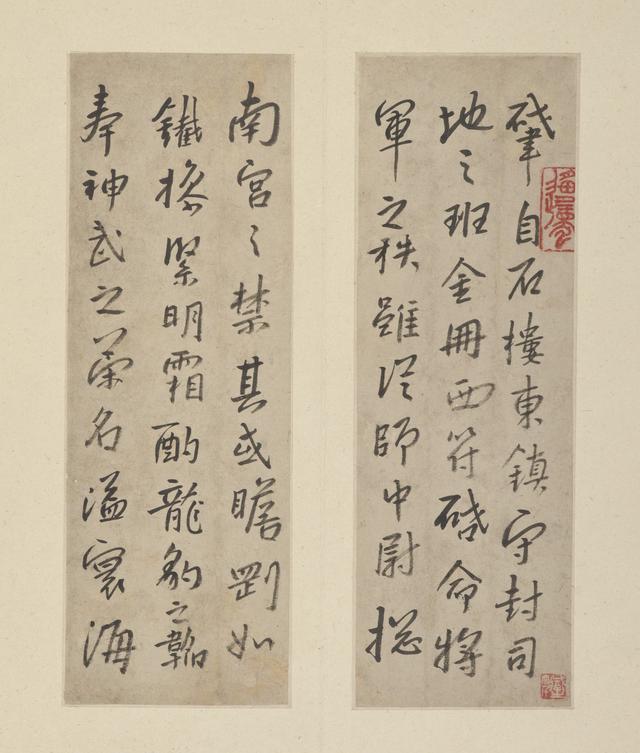 肇自石樓東鎮守封司
地之班金冊西符啓命將
軍之秩雖從師中尉摠
南宮之禁其或瞻剛如
鐵操緊明霜酌龍豹之韜
奉神武之策名溢寰海